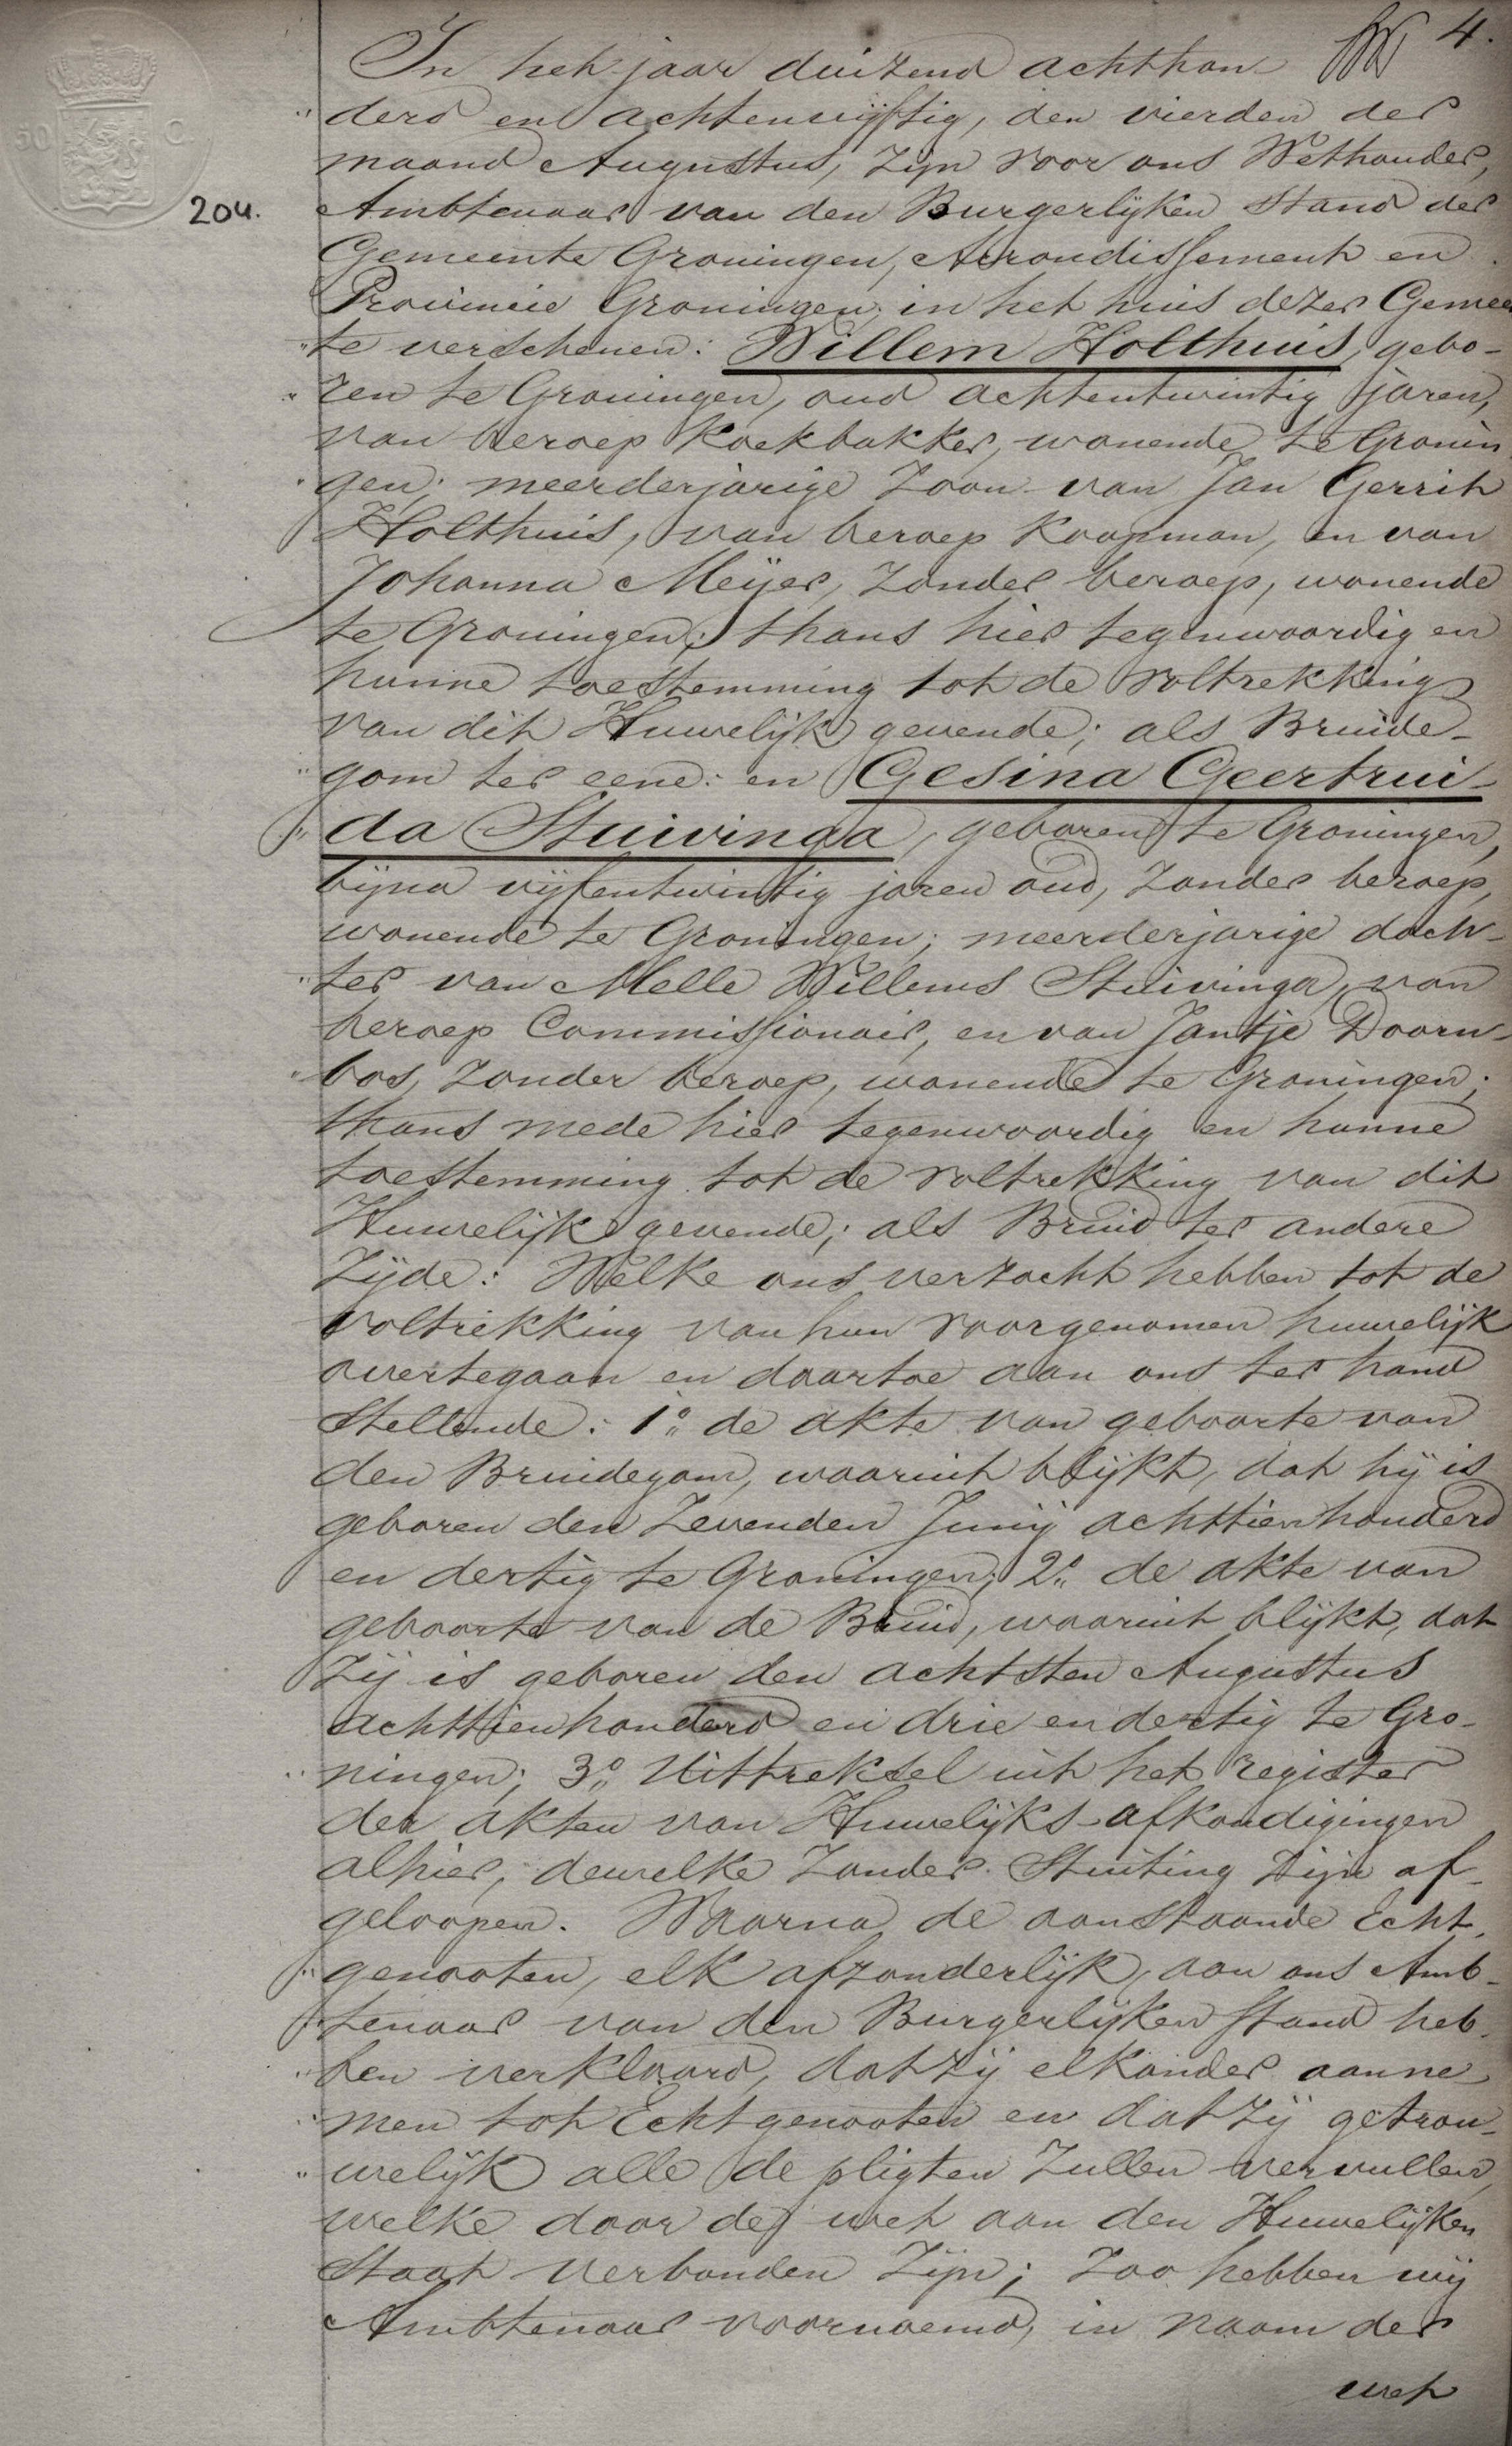 4.
In het jaar duizend achthon-
" derd en achtenvijftig, den vierden der
maand Augustus, zijn voor ons Wethouder,
204.
Ambtenaar van den Burgerlijken Stand der
Gemeente Groningen, Arrondissement en
Provincie Groningen, in het huis dezer Gemeen
" te verschenen: Willem Holthuis, gebo-
" ren te Groningen, oud achtentwintig jaren,
van beroep Koekbakker, wonende te Gronin
" gen; meerderjarige Zoon van Jan Gerrit
Holthuis, van beroep Koopman, en van
Johanna Meijer, zonder beroep, wonende
te Groningen; thans hier tegenwoordig en
hunne toestemming tot de voltrekking
van dit Huwelijk gevende; als Bruide-
" gom ter eene: en Gesina Geertrui-
" da Stuivinga, geboren te Groningen,
bijna vijfentwintig jaren oud, zonder beroep,
wonende te Groningen; meerderjarige doch-
" ter van Melle Willems Stuivinga, van
beroep Commissionair, en van Jantje Doorn-
" bos, zonder beroep, wonende te Groningen;
thans mede hier tegenwoordig en hunne
toestemming tot de voltrekking van dit
Huwelijk gevende; als Bruid ter andere
Zijde: Welke ons verzocht hebben tot de
voltrekking van hun voorgenomen huwelijk
overtegaan en daartoe aan ons ter hand
Stellende: 1º de akte van geboorte van
den Bruidegom, waaruit blijkt, dat hij is
geboren den Zevenden Junij achttienhonderd
en dertig te Groningen; 2º de akte van
geboorte van de Bruid, waaruit blijkt, dat
Zij is geboren den achtsten Augustus
achttienhonderd en drie en dertig te Gro-
" ningen; 3º Uittreksel uit het register
der akten van Huwelijks-afkondigingen
alhier, dewelke zonder Stuiting zijn af-
geloopen. Waarna de aanstaande Echt-
" genooten, elk afzonderlijk, aan ons Amb-
" tenaar van den Burgerlijken Stand heb-
" ben verklaard, dat zij elkander aanne-
" men tot Echtgenooten en dat zij getrou-
" welijk alle de pligten Zullen vervullen,
welke door de wet aan den Huwelijken
Staat verbonden Zijn; Zoo hebben wij
Ambtenaar voornoemd, in naam der
wet